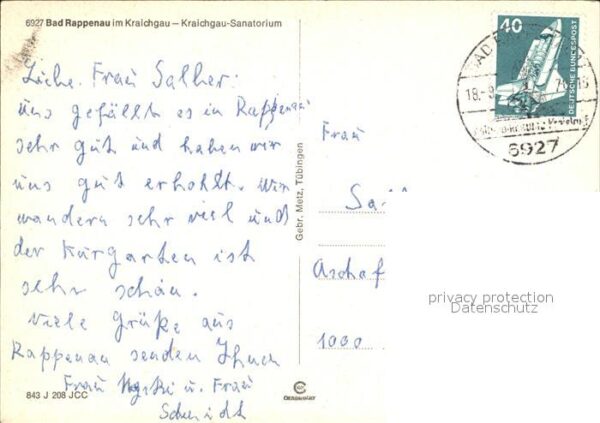 6927 Bad Rappenau im Kraichgau – Kraichgau-Sanatorium
Liebe Frau Salher:
Uns gefällt es in Rappenau
sehr gut und haben wir
uns gut erholt. Wir
wandern sehr viel und
der Kurgarten ist
sehr schön.
Viele Grüße aus
Rappenau senden Ihnen
Frau u. Frau
Schmidt
843 J 208 JCC
Gebr. Metz, Tübingen
40
DEUTSCHE BUNDESPOST
6927
Frau
Aschaf
1000
privacy protection
Datenschutz